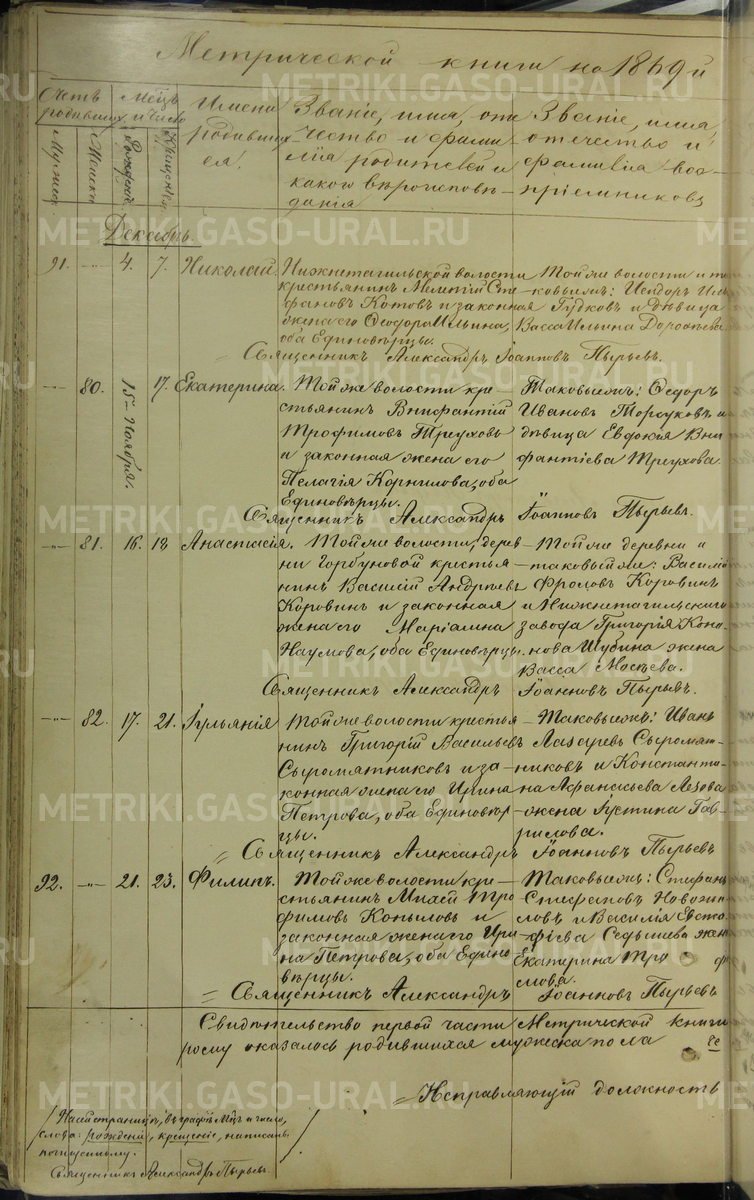 Метрической книги на 1869 й
Счетъ родившихся
Мужеска
Женска
Мѣсяцъ и число
Рожденія
Крещенія
Имена родившихся.
Званіе, имя, отечество и фамилія родителей и какого вѣроисповѣданія
Званіе, имя, отечество и фамилія воспріемниковъ
Декабрь.
91. —"— 4. 7. Николай.
Нижнетагильской волости
крестьянинъ Мелетій Сте-
фановъ Котовъ и законная
жена его Ѳеодора Ильина,
оба Единовѣрцы.
Той же волости и та-
ковыежъ: Исидоръ Иль
Гудковъ и дѣвица
Васса Ильина Дорофѣева
= Священникъ Александръ Іоанновъ Пырьевъ.
—"— 80. 15 Ноября. 17. Екатерина.
Той же волости кре-
стьянинъ Внифантій
Трофимовъ Треухово
и законная жена его
Пелагія Корнилова, оба
Единовѣрцы.
Таковыежъ: Ѳедоръ
Ивановъ и
дѣвица Евдокія Вни
фантіева Треухова.
Священникъ Александръ Іоанновъ Пырьевъ.
—"— 81. 16. 18 Анастасія.
Той же волости, дерев
ни Горбуновой крестья
нинъ Василій Андреевъ
Коровинъ и законная
жена его Маріамна
Наумова, оба Единовѣрцы.
Той же деревни и
таковыйже: Василій
Фроловъ Коровинъ
и Нижнетагильскаго
завода Григорія Коно-
нова Шубина жена
Васса Мосѣева.
Священникъ Александръ Іоанновъ Пырьевъ.
—"— 82. 17. 21. Іульянія
Той же волости крестья
нинъ Григорій Васильевъ
Сыромятниковъ и за-
конная жена его Ирина
Петрова, оба Единовѣр-
цы.
Таковыежъ: Иванъ
Лазаревъ Сыромят-
никовъ и Константи-
на Афанасьева Лезова
жена Іустина Гав-
рилова.
= Священникъ Александръ Іоанновъ Пырьевъ
92. —"— 21. 23. Филипъ.
Той же волости кре-
стьянинъ Михей Тро
фимовъ Копыловъ и
законная жена его Ири
на Петрова, оба Едино
вѣрцы.
Таковыежъ: Стефанъ
Стефановъ Новожи-
ловъ и Василія Евста-
фіева Седышева жен
Екатерина Тро фи
мова.
= Священникъ Александръ Іоанновъ Пырьевъ
Свидѣтельство первой части Метрической книги
рому оказалось родившихся мужеска пола
= Исправляющій должность
/ На сей страницѣ, въ графѣ Мѣцъ и число,
слова: рожденія, крещеніе, написанъ
по чищеному.
Священникъ Александръ Пырьевъ
METRIKI.GASO-URAL.RU